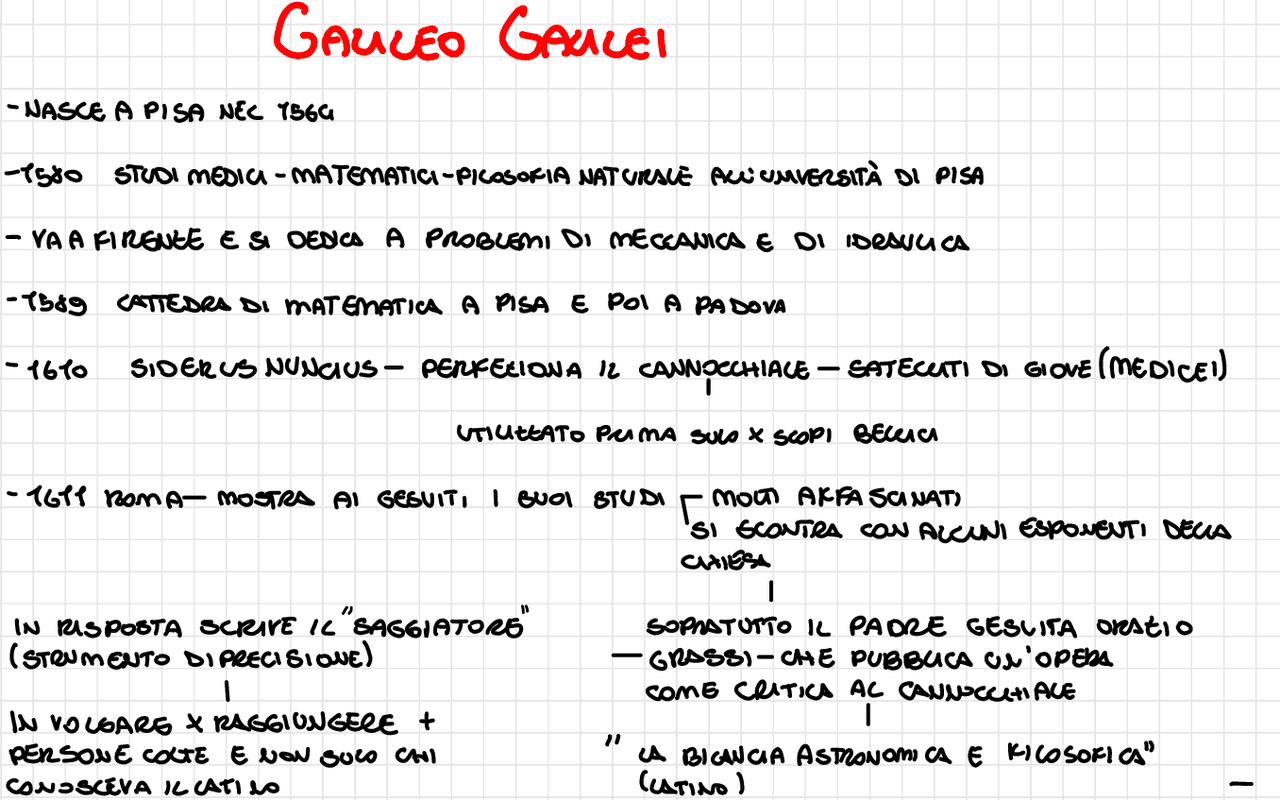 GALILEO GALILEI
- NASCE A PISA NEL 1564
- 1580 STUDI MEDICI - MATEMATICI - FILOSOFIA NATURALE ALL'UNIVERSITÀ DI PISA
- VA A FIRENZE E SI DEDICA A PROBLEMI DI MECCANICA E DI IDRAULICA
- 1589 CATTEDRA DI MATEMATICA A PISA E POI A PADOVA
- 1610 SIDERUS NUNCIUS - PERFEZIONA IL CANNOCCHIALE - SATELLITI DI GIOVE (MEDICEI)
UTILIZZATO PRIMA SOLO X SCOPI BELLICI
- 1611 ROMA - MOSTRA AI GESUITI I SUOI STUDI - MOLTI AFFASCINATI
SI SCONTRA CON ALCUNI ESPONENTI DELLA
CHIESA
SOPRATUTTO IL PADRE GESUITA ORAZIO
- GRASSI - CHE PUBBLICA UN'OPERA
COME CRITICA AL CANNOCCHIALE
"LA BILANCIA ASTRONOMICA E FILOSOFICA"
(LATINO)
IN RISPOSTA SCRIVE IL "SAGGIATORE"
(STRUMENTO DI PRECISIONE)
IN VOLGARE X RAGGIUNGERE +
PERSONE COLTE E NON SOLO CHI
CONOSCEVA IL LATINO